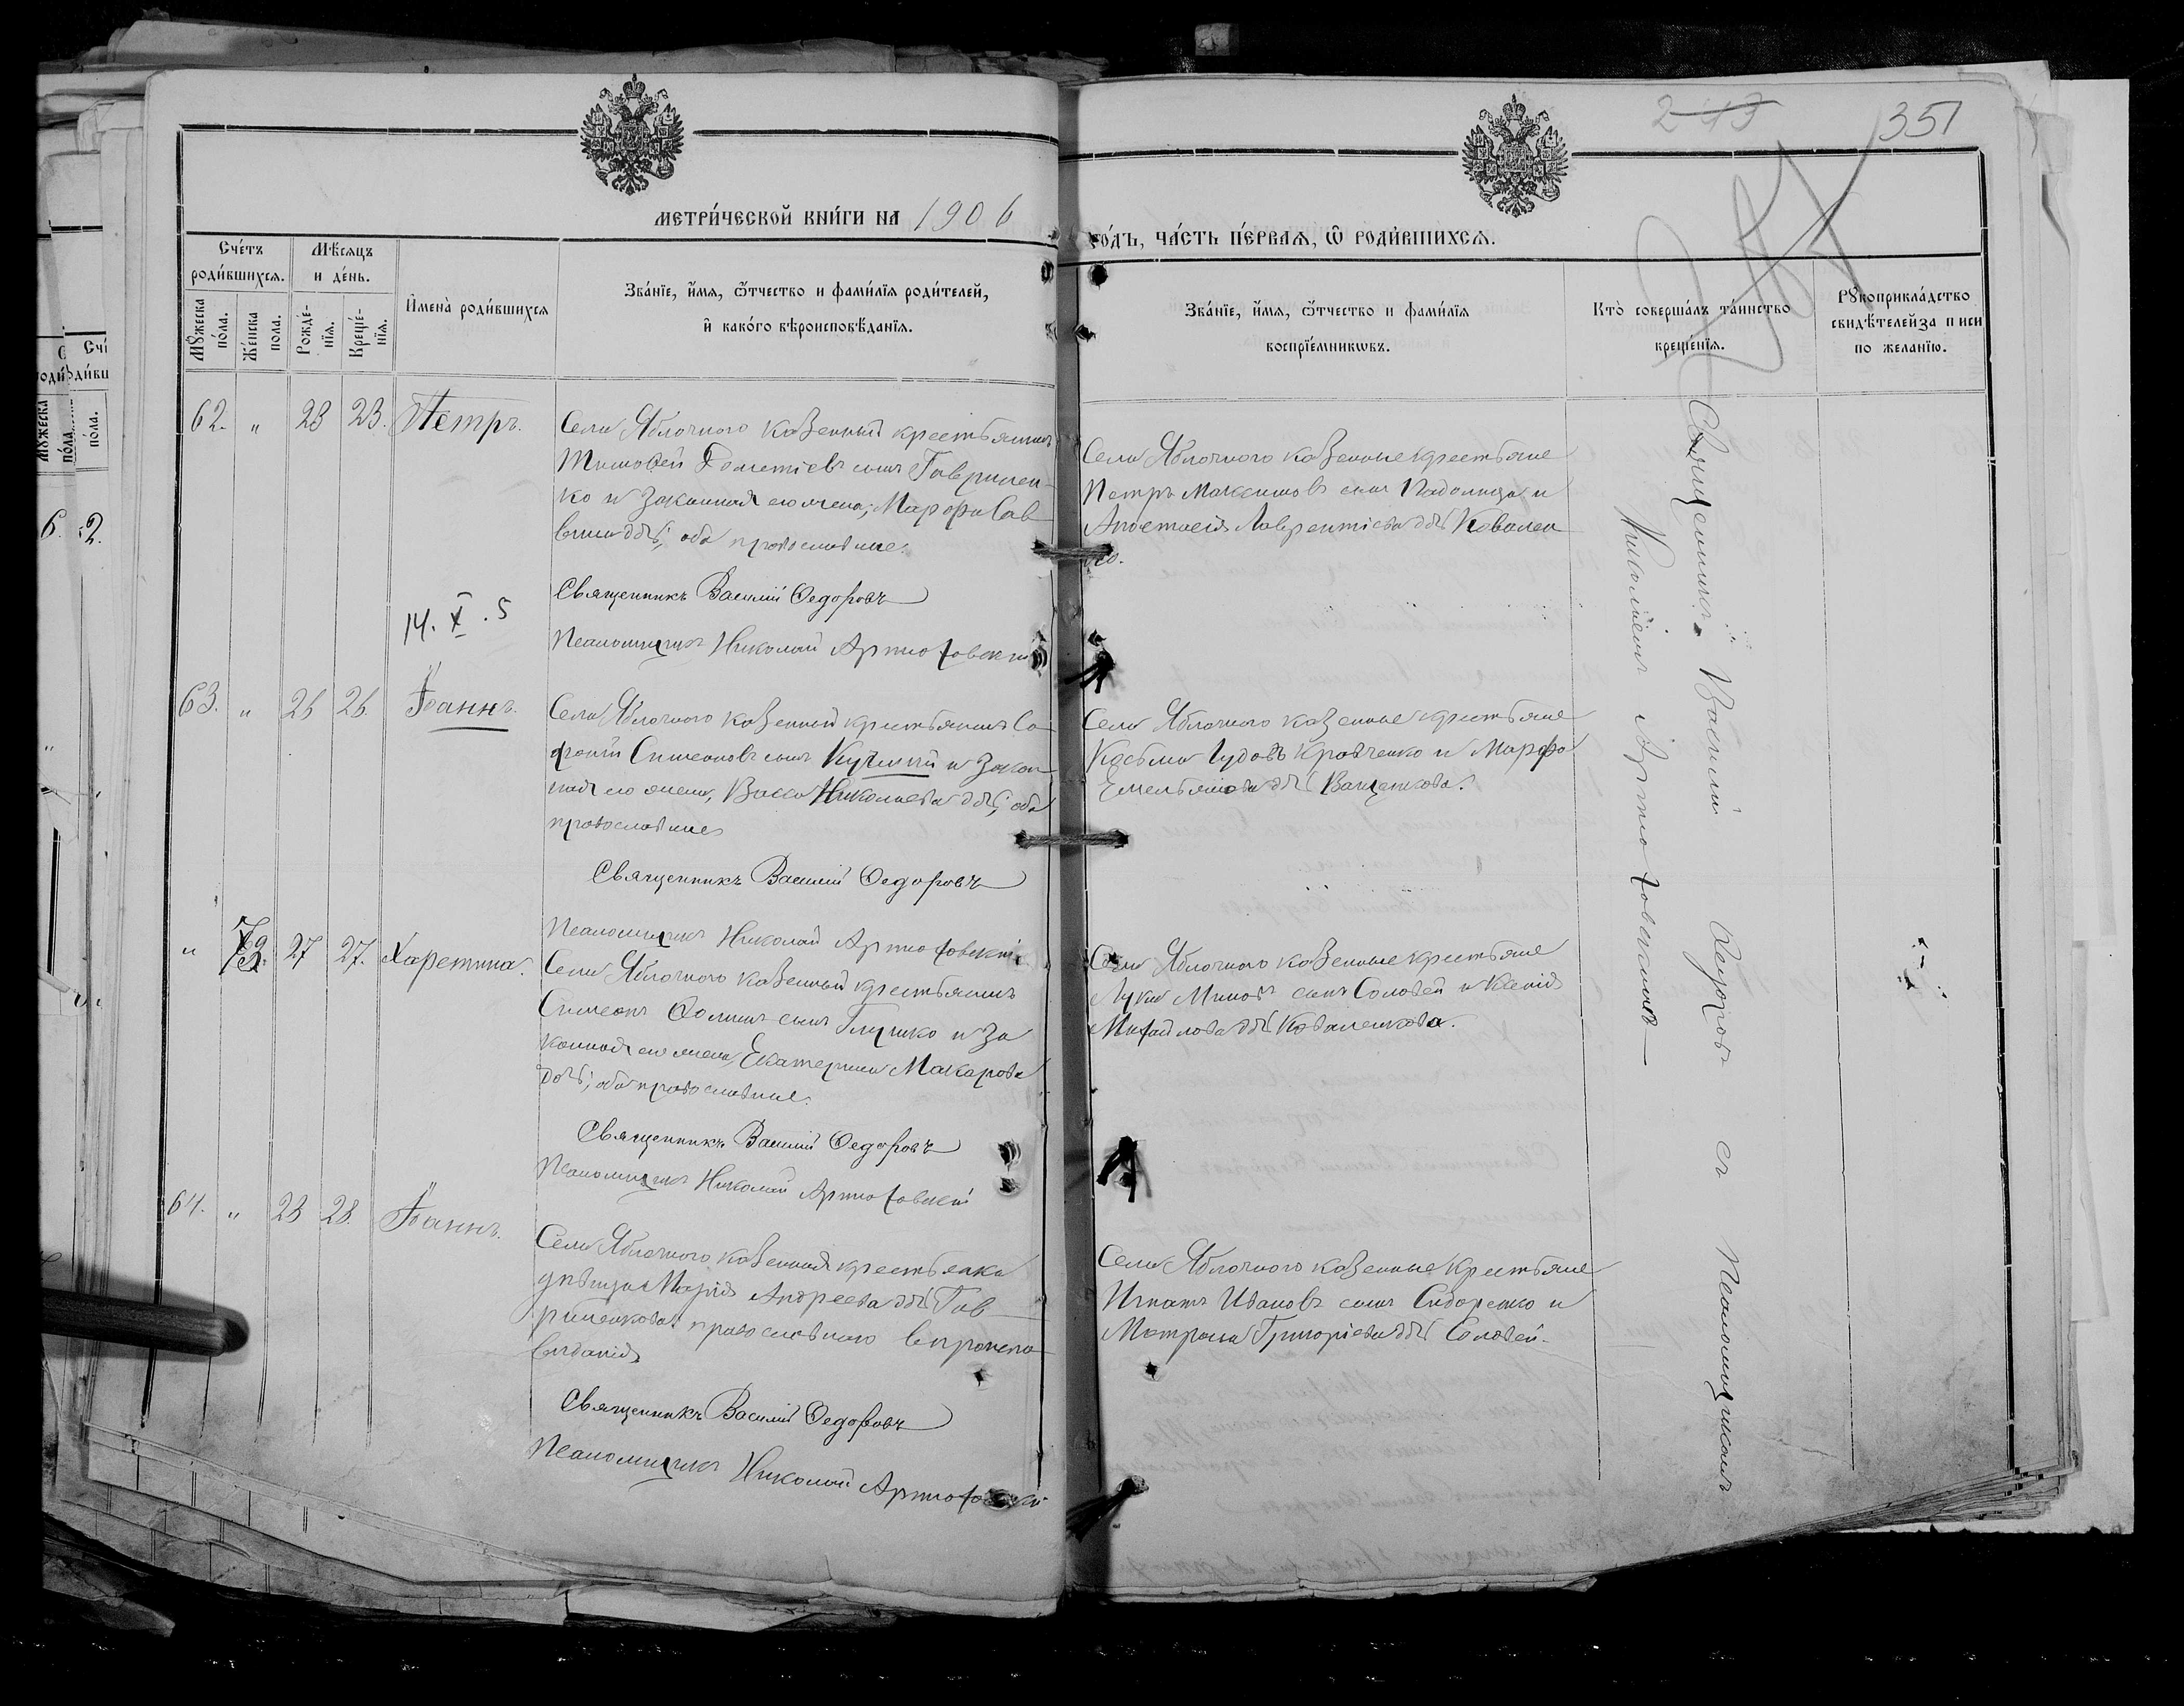 243
351
МЕТРИ́ЧЕСКОЙ КНИ́ГИ НА 1906
ГО́ДЪ, ЧА́СТЬ ПЕ́РВАѦ, Ѽ РОДИ́ВШИХСѦ.
Сче́тъ роди́вшихсѧ.
Мѣ́сѧцъ и де́нь.
Мꙋ́жеска по́ла.
Же́нска по́ла.
Рожде́-нїѧ.
Креще́-нїѧ.
И҆мена̀ роди́вшихсѧ
Зва́нїе, и҆́мѧ, ѻ҆́тчество и фами́лїѧ роди́телей,
и҆ како́гѡ вѣроисповѣ́данїѧ.
Зва́нїе, и҆́мѧ, ѻ҆́тчество и фами́лїѧ
воспрїе́мникѡвъ.
Кто̀ соверша́лъ та́инство
креще́нїѧ.
Рꙋкоприкла́дство
свидѣ́телей за писи
по жела́нїю.
62. " 23 23. Петръ.
Села Яблочного казенный крестьянинъ
Тимофей Дометіевъ сынъ Гаврилен-
ко и законная его жена, Марфа Сав
вина дчь; оба православные.
Священникъ Василій Ѳедоровъ
Псаломщикъ Николай Артюховскій
Села Яблочного казенные крестьяне
Петръ Максимовъ сынъ Падолица и
Анастасія Лаврентіева дчь Ковален
ко.
14. X. 5
63. " 26 26. Іоаннъ.
Села Яблочного казенный крестьянинъ Со
фроній Симеоновъ сынъ Куцый и закон
ная его жена, Васса Николаева дчь; оба
православные
Священникъ Василій Ѳедоровъ
Псаломщикъ Николай Артюховскій
Села Яблочного казенные крестьяне
Косьма Іудовъ Кравченко и Марфа
Емельянова дчь Ващенкова.
" 73. 27 27. Харетина.
Села Яблочного казенный крестьянинъ
Симеонъ Ѳоминъ сынъ Глушко и за
конная его жена, Екатерина Макарова
дочь; оба православные.
Священникъ Василій Ѳедоровъ
Псаломщикъ Николай Артюховскій
Села Яблочного казенные крестьяне
Лука Миновъ сынъ Соловей и Ксенія
Михайлова дчь Коваленкова.
64. " 28 28. Іоаннъ.
Села Яблочного казенная крестьянка
дѣвица Марія Андреева дчь Гав
риленкова православного вѣроиспо
вѣданія
Священникъ Василій Ѳедоровъ
Псаломщикъ Николай Артюховскій
Села Яблочного казенные крестьяне
Игнатъ Ивановъ сынъ Сидоренко и
Матрона Григоріева дчь Соловей.
Священникъ Василій Ѳедоровъ съ псаломщикомъ
Николаемъ Артюховскимъ